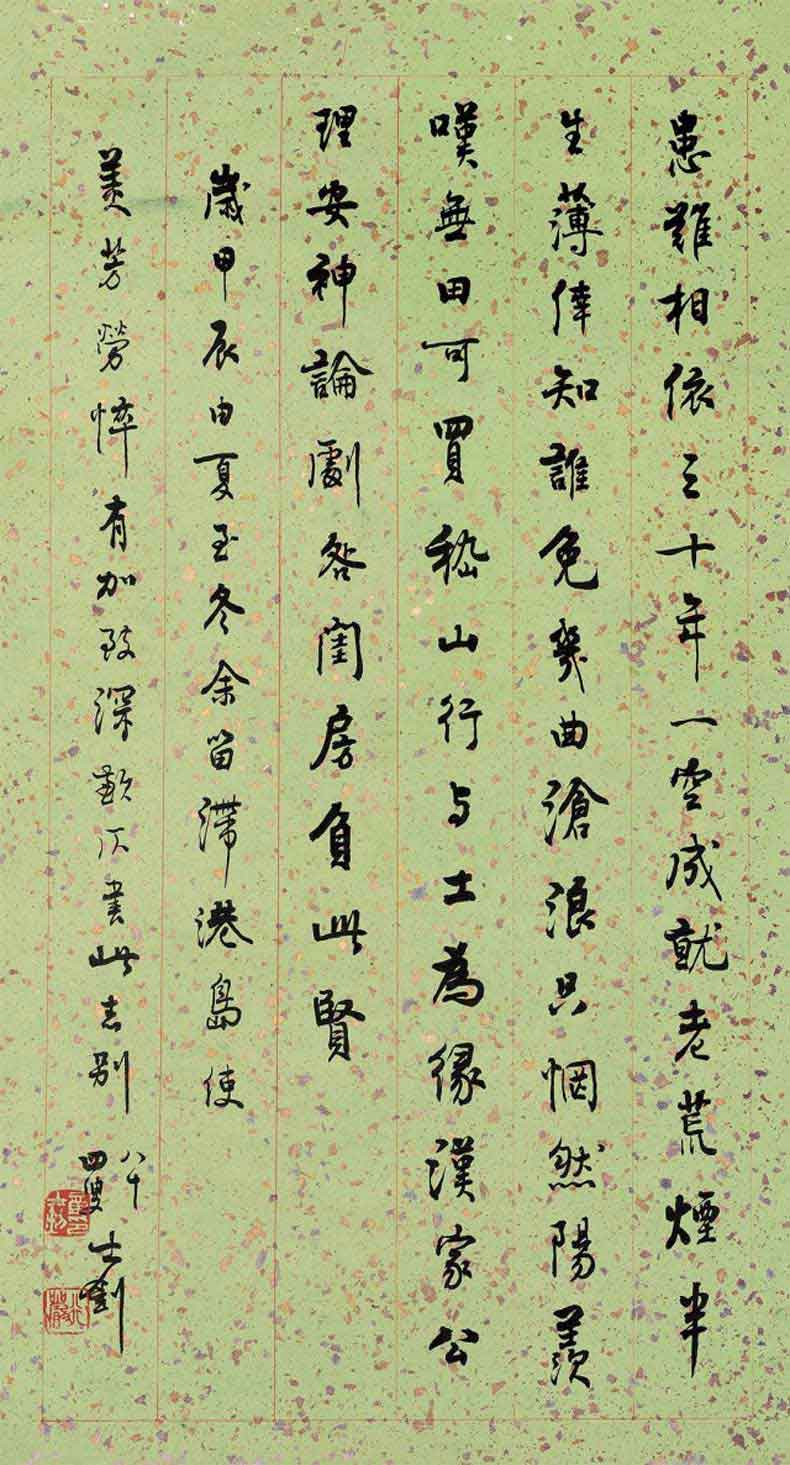 患難相依三十年一空成就老荒煙半
生薄倖知誰免幾曲滄浪只惘然陽羨
嘆無田可買嵇山行与土為緣漢家公
理安神論劇咎閨房負此賢
歲甲辰由夏至冬余留滯港島使
美芳勞悴有加致深歉仄書此志別
八十四叟
士釗